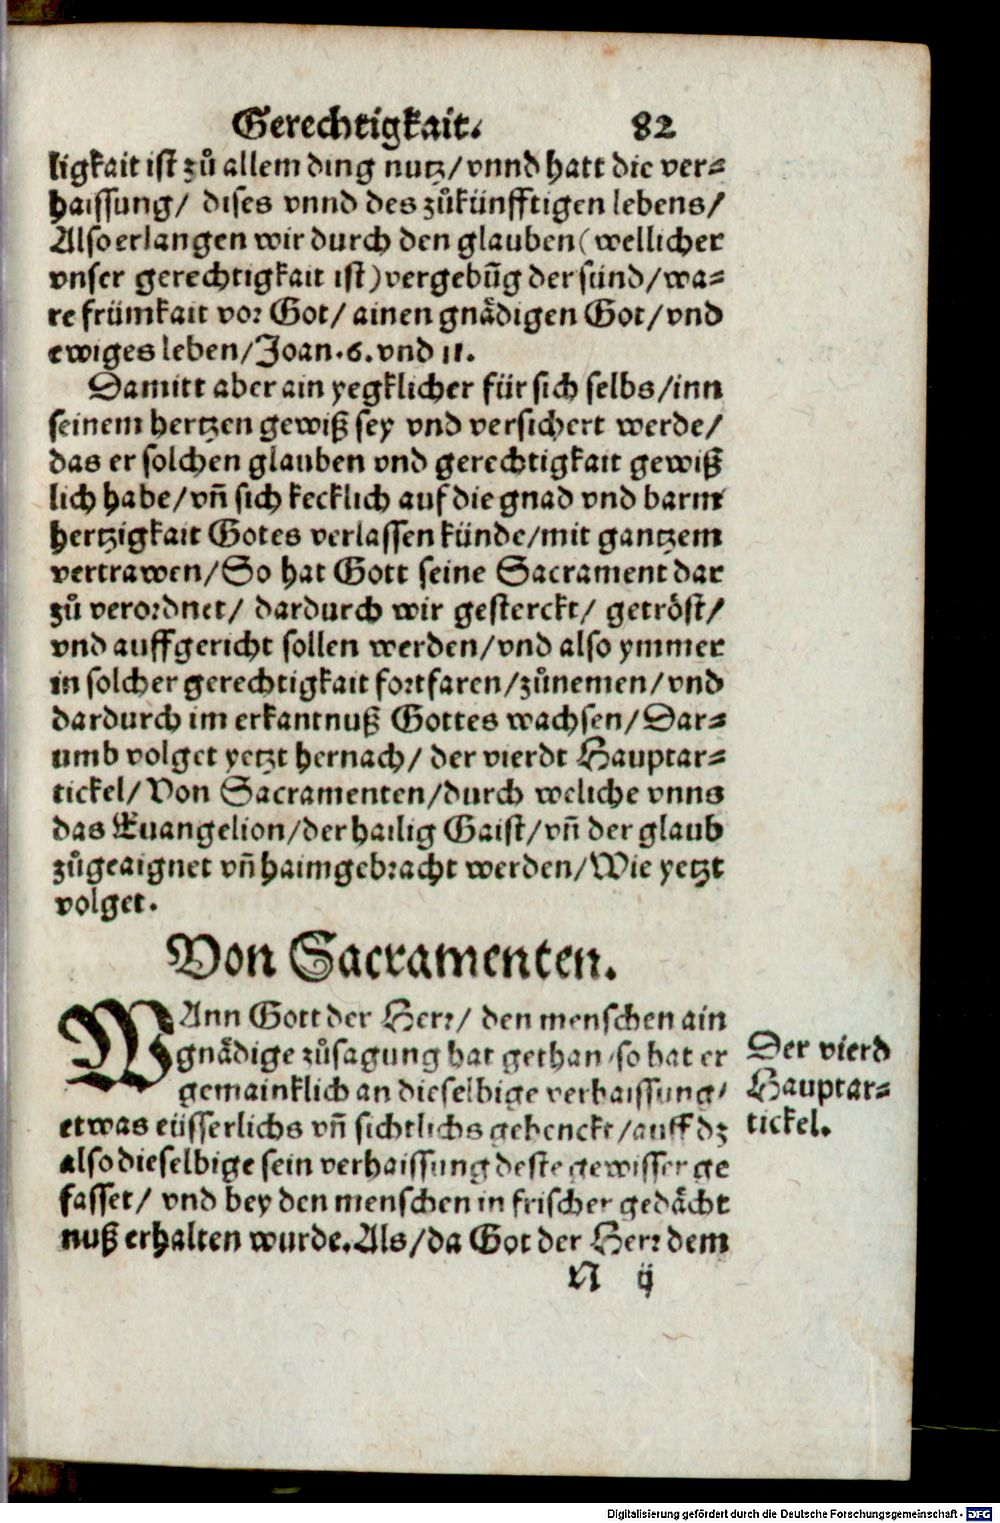 Gerechtigkait. 82
ligkait ist zů allem ding nutz/ vnnd hatt die ver⸗
haissung/ dises vnnd des zůkünfftigen lebens/
Also erlangen wir durch den glauben (wellicher
vnser gerechtigkait ist) vergebũg der sünd/ wa⸗
re frümkait vor Got/ ainen gnädigen Got/ vnd
ewiges leben/ Joan. 6. vnd 11.
Damitt aber ain yegklicher für sich selbs/ inn
seinem hertzen gewiß sey vnd versichert werde/
das er solchen glauben vnd gerechtigkait gewiß
lich habe/ vñ sich kecklich auf die gnad vnd barm
hertzigkait Gotes verlassen künde/ mit gantzem
vertrawen/ So hat Gott seine Sacrament dar
zů verordnet/ dardurch wir gesterckt/ getröst/
vnd auffgericht sollen werden/ vnd also ymmer
in solcher gerechtigkait fortfaren/ zůnemen/ vnd
dardurch im erkantnuß Gottes wachsen/ Dar⸗
umb volget yetzt hernach/ der vierdt Hauptar⸗
tickel/ Von Sacramenten/ durch weliche vnns
das Euangelion/ der hailig Gaist/ vñ der glaub
zůgeaignet vñ haimgebracht werden/ Wie yetzt
volget.
Von Sacramenten.
WAnn Gott der Herr/ den menschen ain
gnädige zůsagung hat gethan/ so hat er
gemainklich an dieselbige verhaissung/
etwas eüsserlichs vñ sichtlichs gehenckt/ auff dz
also dieselbige sein verhaissung deste gewisser ge
fasset/ vnd bey den menschen in frischer gedächt
nuß erhalten wurde. Als/ da Got der Herr dem
N ij
Der vierd
Hauptar⸗
tickel.
Digitalisierung gefördert durch die Deutsche Forschungsgemeinschaft - DFG